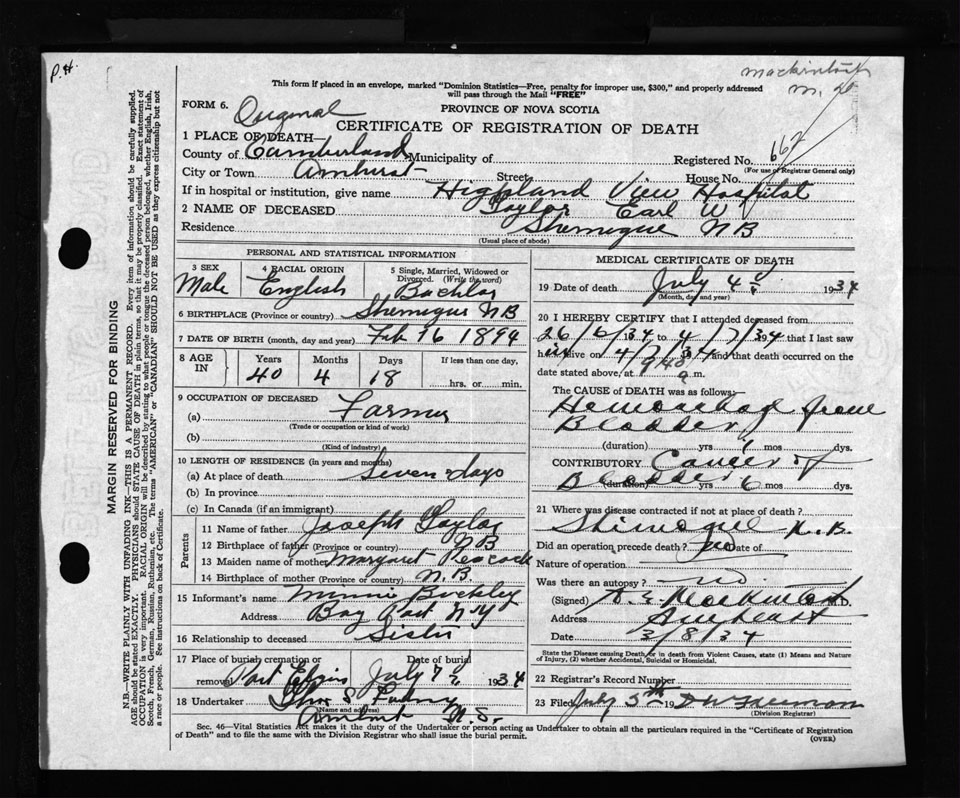 P.H.
Mackintosh
M. D
This form if placed in an envelope, marked "Dominion Statistics—Free, penalty for improper use, $300," and properly addressed
will pass through the Mail "FREE"
FORM 6. Original
PROVINCE OF NOVA SCOTIA
CERTIFICATE OF REGISTRATION OF DEATH
1 PLACE OF DEATH—
County of Cumberland Municipality of Registered No. 662
(For use of Registrar General only)
City or Town Amherst Street House No.
If in hospital or institution, give name Highland View Hospital
2 NAME OF DECEASED Taylor Earl W
Residence Shemogue N B
(Usual place of abode)
PERSONAL AND STATISTICAL INFORMATION
3 SEX Male
4 RACIAL ORIGIN English
5 Single, Married, Widowed or Divorced. (Write the word) Bachlor
6 BIRTHPLACE (Province or country) Shemogue N B
7 DATE OF BIRTH (month, day and year) Feb 16 1894
8 AGE IN Years 40 Months 4 Days 18 If less than one day, hrs. or min.
9 OCCUPATION OF DECEASED
(a) Farmer
(Trade or occupation or kind of work)
(b)
(Kind of industry)
10 LENGTH OF RESIDENCE (in years and months)
(a) At place of death Seven days
(b) In province
(c) In Canada (if an immigrant)
Parents
11 Name of father Joseph Taylor
12 Birthplace of father (Province or country) N B
13 Maiden name of mother Margaret Peacock
14 Birthplace of mother (Province or country) N. B.
15 Informant's name Minnie Buckley
Address N Y
16 Relationship to deceased Sister
17 Place of burial cremation or removal Port Elgin Date of burial July 7 1934
18 Undertaker
(Name and address)
Amherst N. S.
MEDICAL CERTIFICATE OF DEATH
19 Date of death July 4 1934
(Month, day and year)
20 I HEREBY CERTIFY that I attended deceased from
26/6/34, to 4/7/34 that I last saw
him alive on 4/7/34 and that death occurred on
date stated above, at 9 40 a m.
The CAUSE OF DEATH was as follows:
Hemorrhage from
Bladder
(duration) yrs mos dys.
CONTRIBUTORY Cancer of
Bladder (duration) yrs 6 mos dys.
21 Where was disease contracted if not at place of death?
Shimogue N. B.
Did an operation precede death? no Date of
Nature of operation
Was there an autopsy? no.
(Signed) Mackintosh M.D.
Address Amherst
Date 3/8/34
State the Disease causing Death, or in death from Violent Causes, state (1) Means and Nature
of Injury, (2) whether Accidental, Suicidal or Homicidal.
22 Registrar's Record Number
23 Filed July 5th 19
(Division Registrar)
Sec. 46—Vital Statistics Act makes it the duty of the Undertaker or person acting as Undertaker to obtain all the particulars required in the "Certificate of Registration
of Death" and to file the same with the Division Registrar who shall issue the burial permit.
(OVER)
MARGIN RESERVED FOR BINDING
N.B.—WRITE PLAINLY WITH UNFADING INK—THIS IS A PERMANENT RECORD. Every item of information should be carefully supplied.
AGE should be stated EXACTLY. PHYSICIANS should STATE CAUSE OF DEATH in plain terms, so that it may be properly classified. Exact statement of
OCCUPATION is very important. RACIAL ORIGIN will be described by stating to what people or tongue the deceased person belonged, whether English, Irish,
Scotch, French, German, Russian, Ruthenian, etc. The terms "AMERICAN" or "CANADIAN" SHOULD NOT BE USED as they express citizenship but not
a race or people. See instructions on back of Certificate.